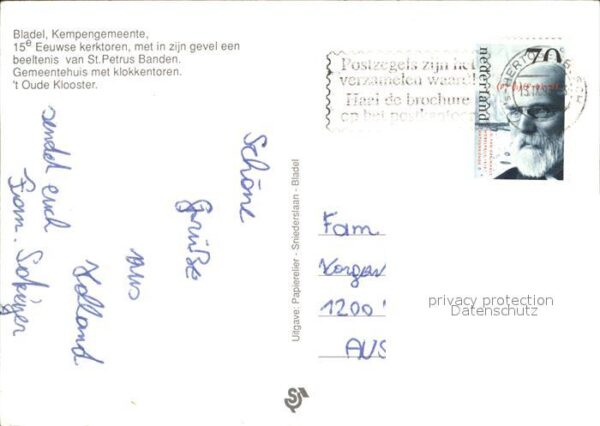 Bladel, Kempengemeente,
15e Eeuwse kerktoren, met in zijn gevel een
beeltenis van St.Petrus Banden.
Gemeentehuis met klokkentoren.
't Oude Klooster.
Schöne
Grüße
aus
Holland
sendet euch
Fam.
Uitgave: Papierelier - Sniederslaan - Bladel
Postzegels zijn het
verzamelen waard!
Haal de brochure
op het postkantoor
70 c
nederland
Fam.
1200
AUS
privacy protection
Datenschutz